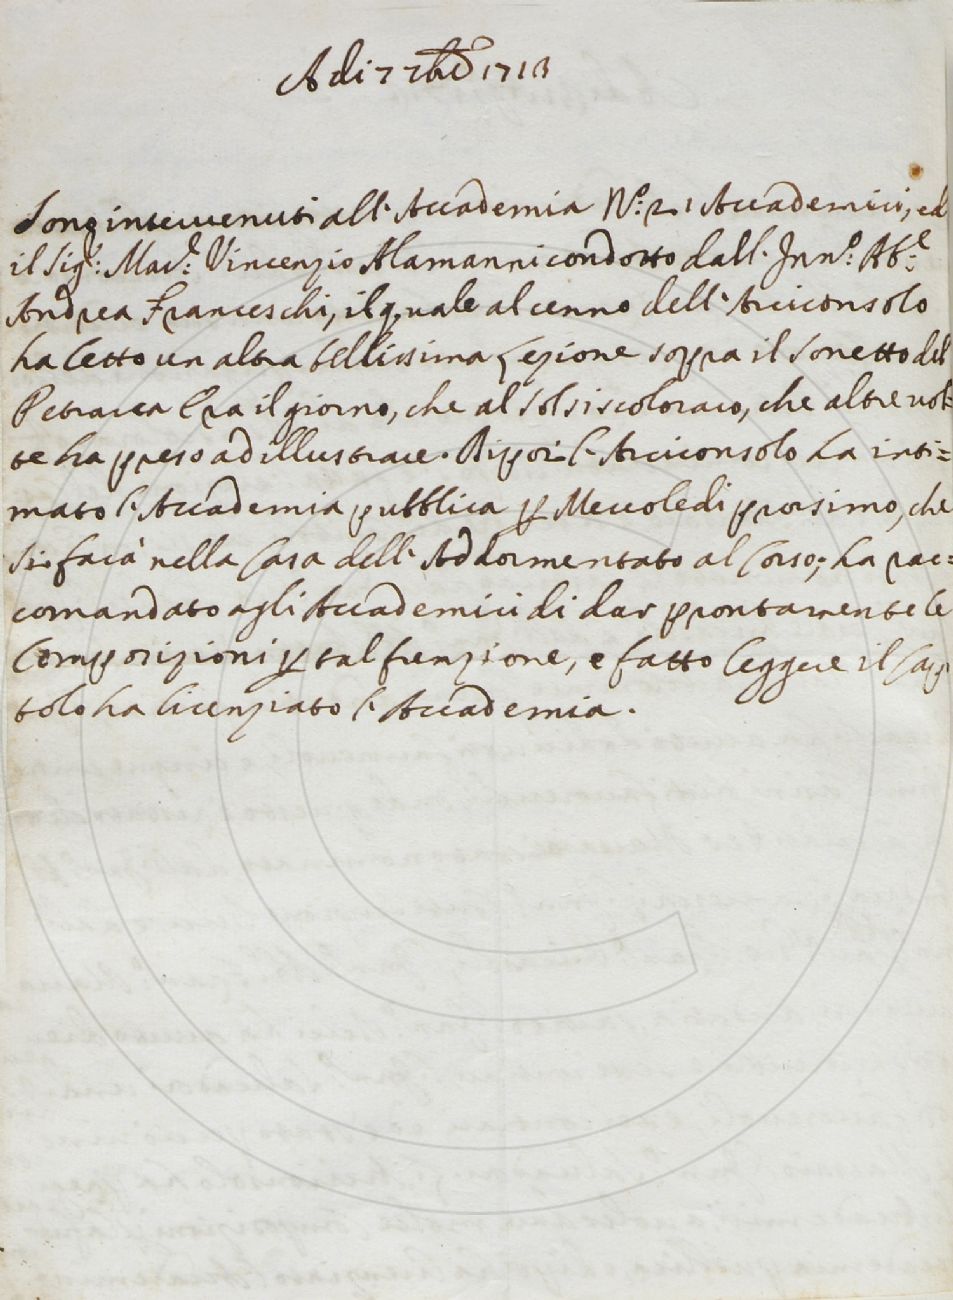 A di 7 7bre 1713
Sono intervenuti all'Accademia N.º 21 Accademici, ed
il Sig.r Mar.e Vincenzio Alamanni condotto dall'Inn.º Ab.e
Andrea Franceschi, il quale al cenno dell'Arciconsolo
ha letto un altra bellissima Lezione sopra il Sonetto del
Petrarca Era il giorno, che al sol si scoloraro, che altre vol=
te ha preso ad illustrare. Di poi l'Arciconsolo ha inti=
mato l'Accademia pubblica p Mercoledi prossimo, che
si farà nella Casa dell'Addormentato al Corso; ha rac=
comandato agli Accademici di dar prontamente le
Composizioni p tal funzione, e fatto leggere il Capi
tolo ha licenziato l'Accademia.